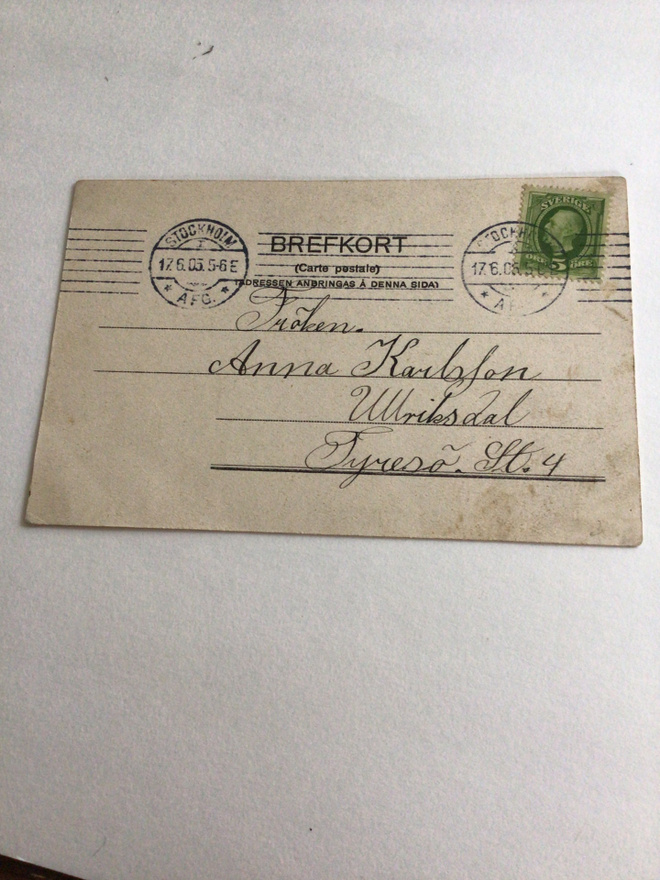 STOCKHOLM
1
17.6.05.5-6 E
* AFG. *
BREFKORT
(Carte postale)
(ADRESSEN ANBRINGAS Å DENNA SIDA)
STOCKHOLM
17.6.05.
SVERIGE
5 ÖRE
Fröken.
Anna Karlsson
Ullriksdal
Tyresö. St. 4